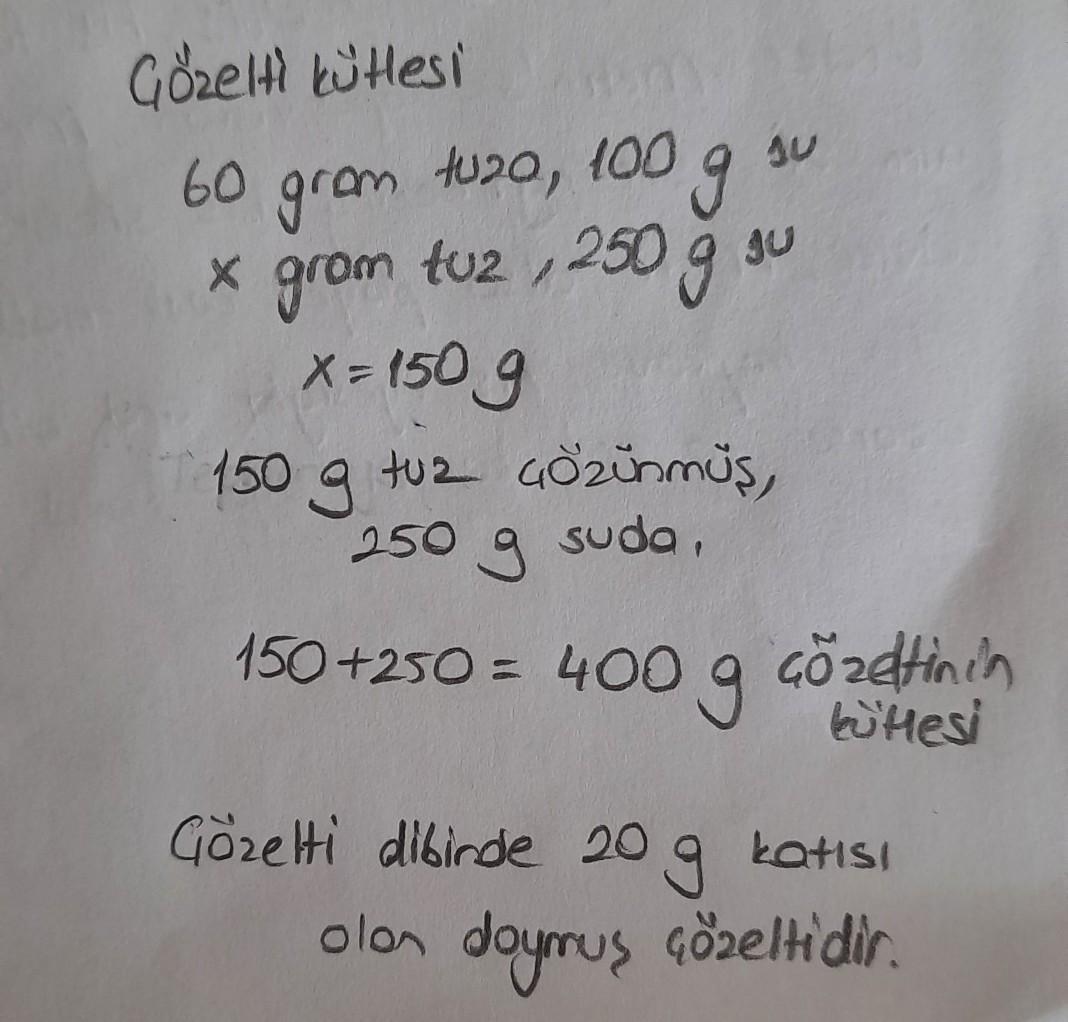 Çözelti kütlesi
60 gram tuza, 100 g su
x gram tuz, 250 g su
x = 150 g
150 g tuz çözünmüş,
250 g suda.
150+250 = 400 g çözeltinin
kütlesi
Çözelti dibinde 20 g katısı
olan doymuş çözeltidir.